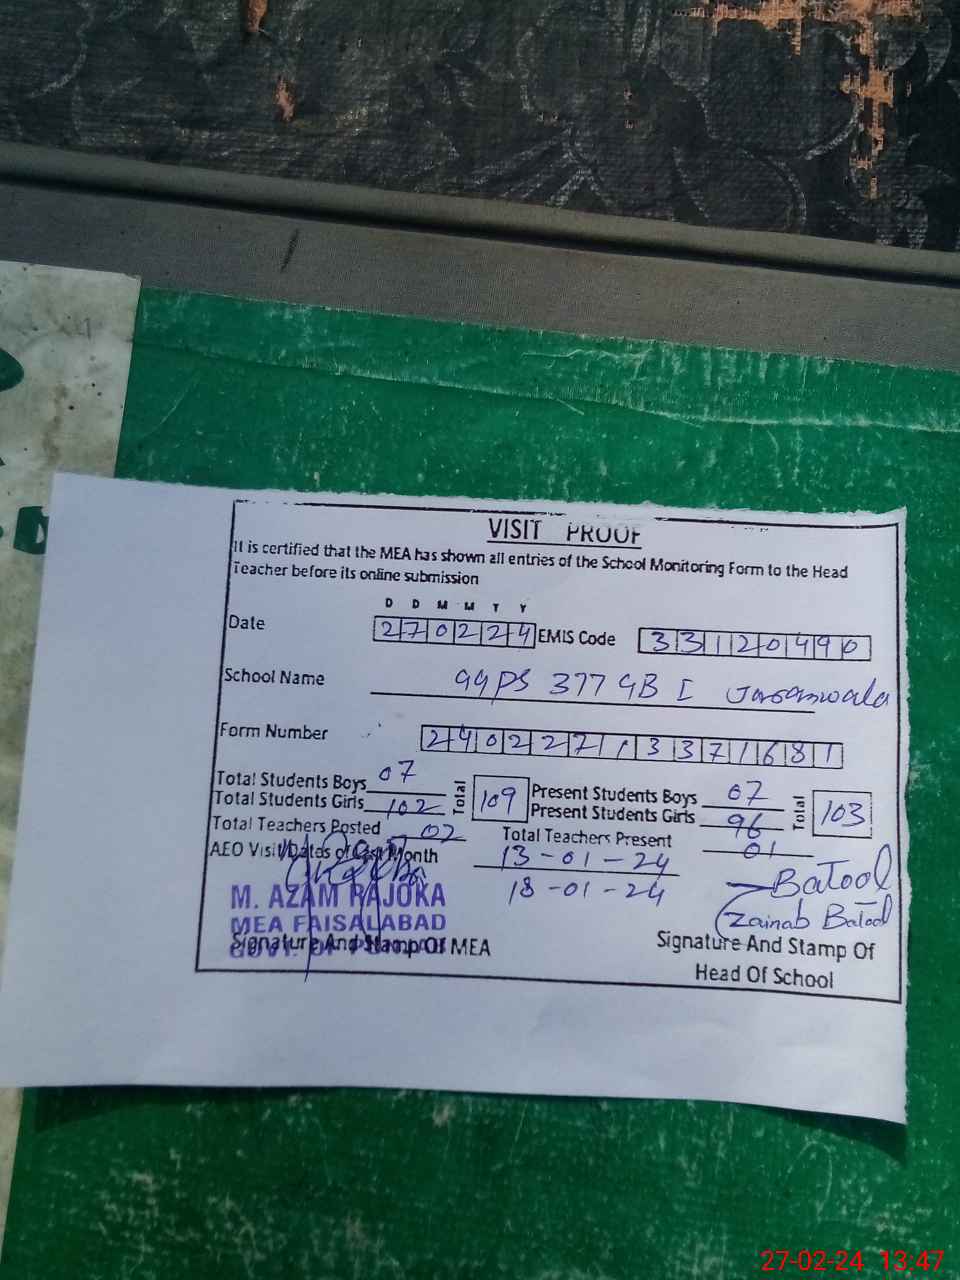 VISIT PROOF
It is certified that the MEA has shown all entries of the School Monitoring Form to the Head
Teacher before its online submission
D D M M Y Y
Date 270224 EMIS Code 33120490
School Name GGPS 377 GB I
Form Number 24022713371681
Total Students Boys 07 Total 109 Present Students Boys 07 Total 103
Total Students Girls 102 Present Students Girls 96
Total Teachers Posted 02 Total Teachers Present 01
AEO Visit Dates of Last Month 13-01-24
18-01-24
Batool
Zainab Batool
M. AZAM RAJOKA
MEA FAISALABAD
GOVT. OF
Signature And Stamp Of MEA
Signature And Stamp Of
Head Of School
27-02-24 13:47